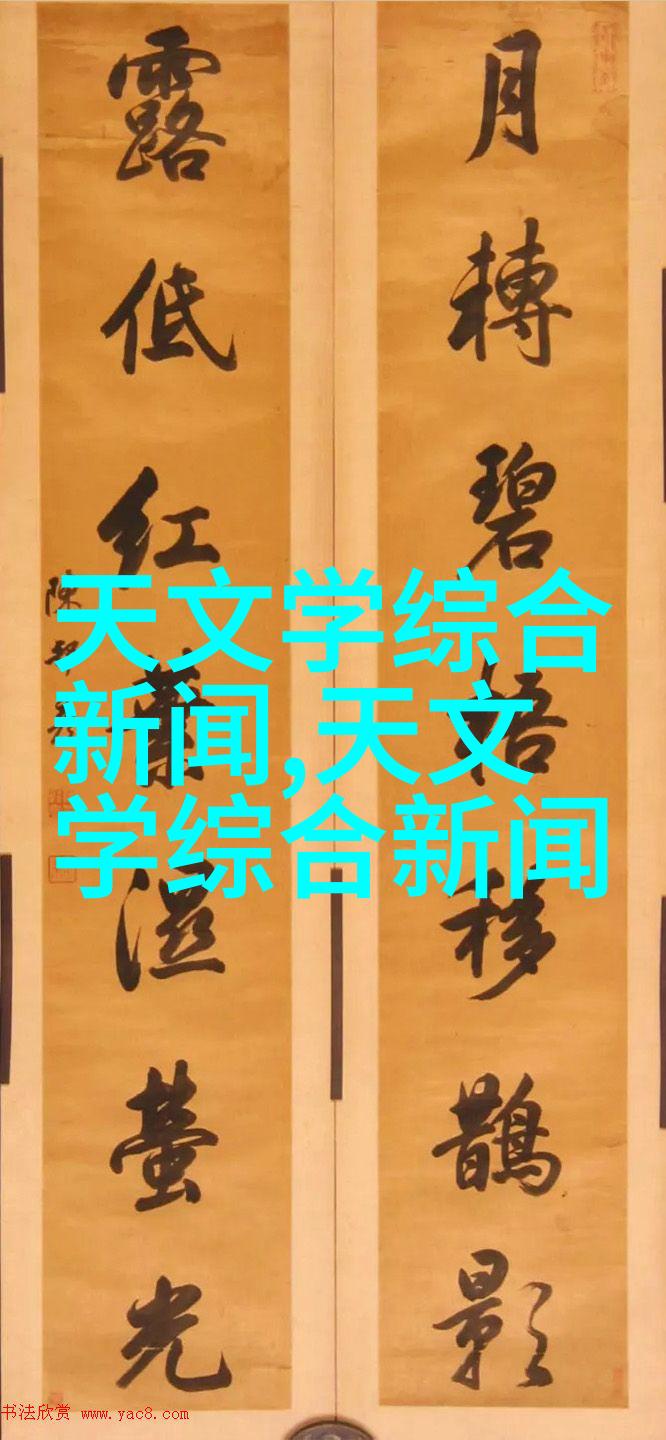 月轉碧梧移鵲影
露低紅葉湿螢光
陳邦
天文学综合
新闻,天文
学综合新闻
书法欣赏 www.yac8.com